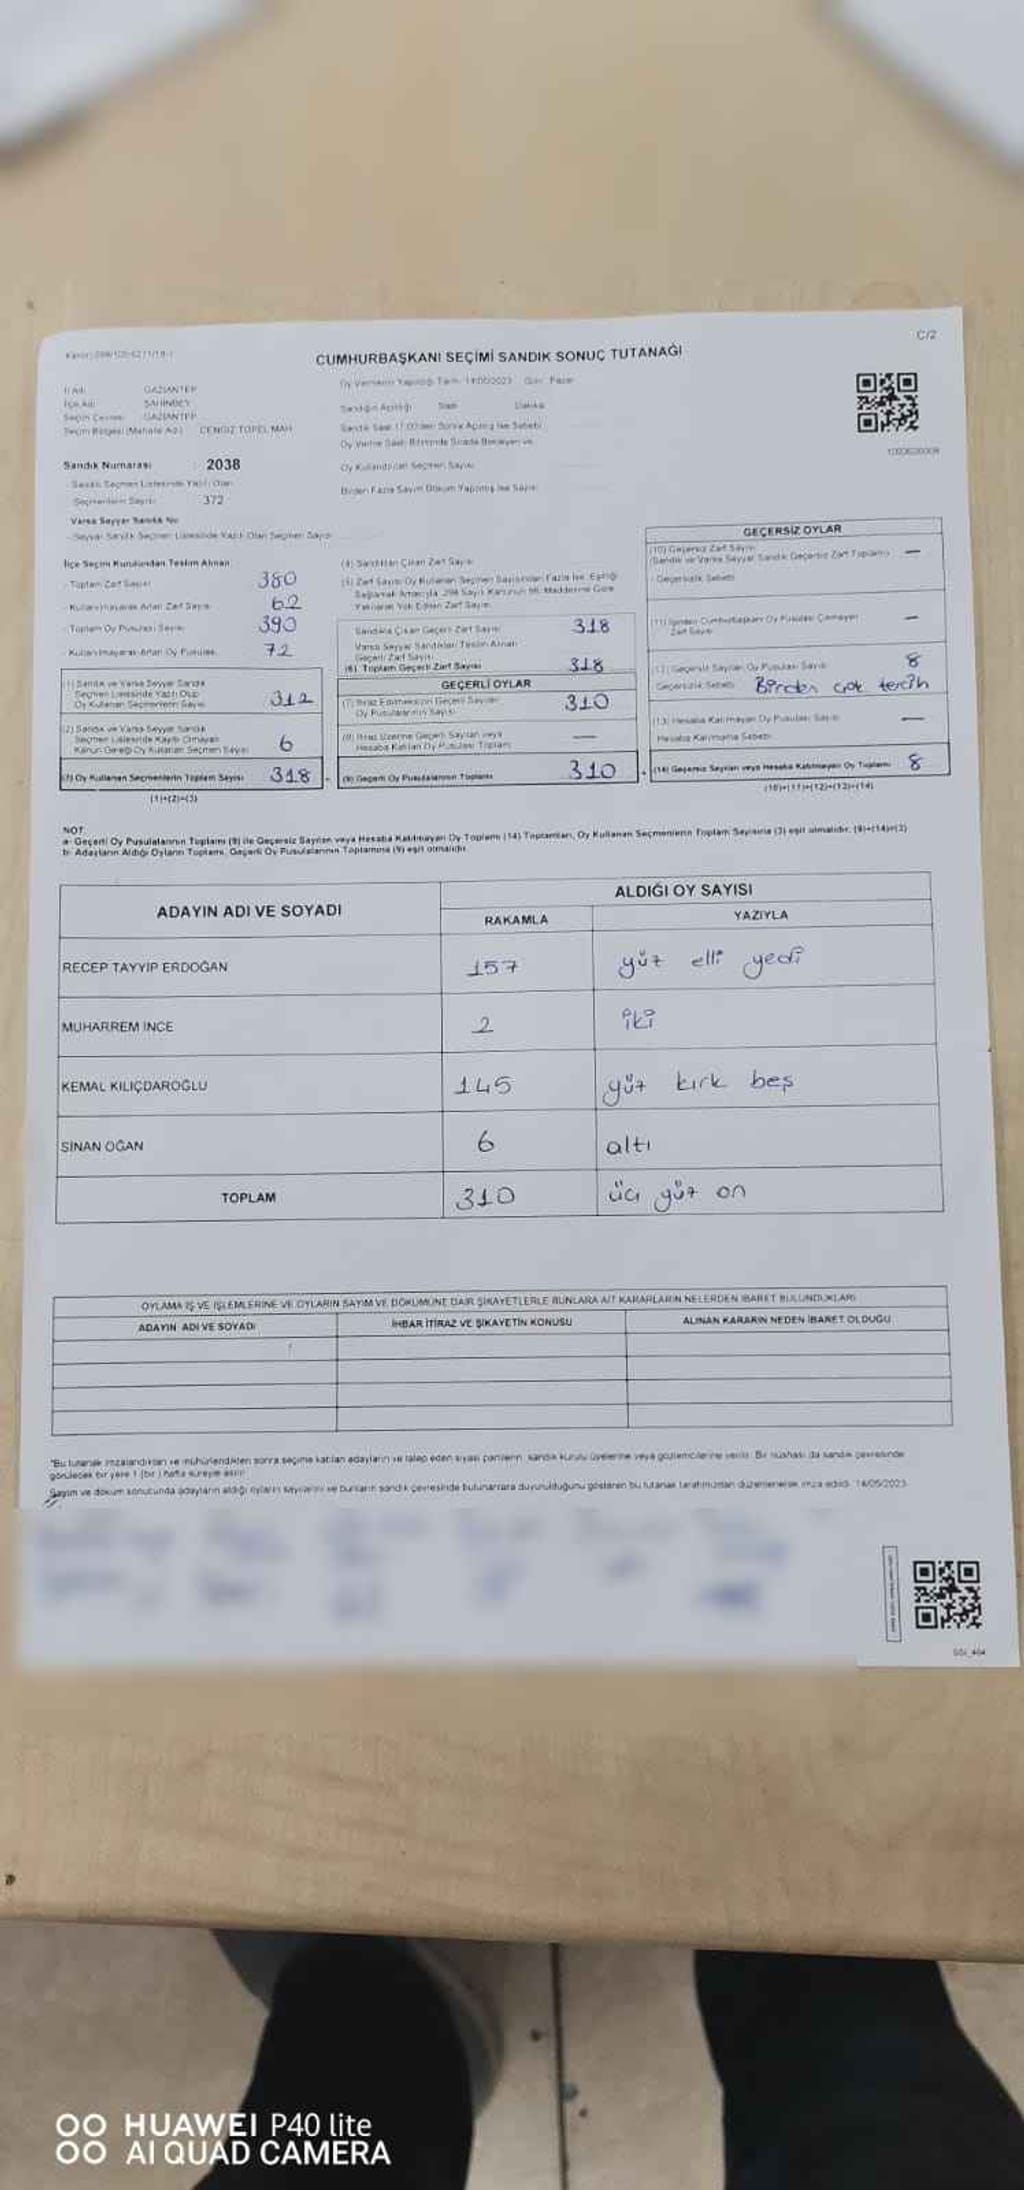 C/2
CUMHURBAŞKANI SEÇİMİ SANDIK SONUÇ TUTANAĞI
İl Adı: GAZİANTEP
İlçe Adı: ŞAHİNBEY
Seçim Çevresi: GAZİANTEP
Seçim Bölgesi (Mahalle Adı): CENGİZ TOPEL MAH
Oy Vermenin Yapıldığı Tarih: 14/05/2023 Gün: Pazar
Sandığın Açıldığı Saat Dakika
Oy Kullandırılan Seçmen Sayısı
Birden Fazla Sayım Döküm Yapılmış İse Sayısı
Sandık Numarası : 2038
- Sandık Seçmen Listesinde Yazılı Olan
Seçmenlerin Sayısı : 372
Varsa Seyyar Sandık No
- Seyyar Sandık Seçmen Listesinde Yazılı Olan Seçmen Sayısı
İlçe Seçim Kurulundan Teslim Alınan
- Toplam Zarf Sayısı 380
- Kullanılmayarak Artan Zarf Sayısı 62
- Toplam Oy Pusulası Sayısı 390
- Kullanılmayarak Artan Oy Pusulası 72
(1) Sandık ve Varsa Seyyar Sandık
Seçmen Listesinde Yazılı Olup
Oy Kullanan Seçmenlerin Sayısı 312
(2) Sandık ve Varsa Seyyar Sandık
Seçmen Listesinde Kayıtlı Olmayan
Kanun Gereği Oy Kullanan Seçmen Sayısı 6
(3) Oy Kullanan Seçmenlerin Toplam Sayısı 318
(1)+(2)=(3)
(4) Sandıktan Çıkan Zarf Sayısı
(5) Zarf Sayısı Oy Kullanan Seçmen Sayısından Fazla İse, Eşitliği
Sağlamak Amacıyla, 298 Sayılı Kanunun 98. Maddesine Göre
Yakılarak Yok Edilen Zarf Sayısı
Sandıkta Çıkan Geçerli Zarf Sayısı 318
Varsa Seyyar Sandıktan Teslim Alınan
Geçerli Zarf Sayısı
(6) Toplam Geçerli Zarf Sayısı 318
GEÇERLİ OYLAR
(7) İtiraz Edilmeksizin Geçerli Sayılan
Oy Pusulalarının Sayısı 310
(8) İtiraz Üzerine Geçerli Sayılan veya
Hesaba Katılan Oy Pusulası Toplamı —
(9) Geçerli Oy Pusulalarının Toplamı 310
GEÇERSİZ OYLAR
(10) Geçersiz Zarf Sayısı
(Sandık ve Varsa Seyyar Sandık Geçersiz Zarf Toplamı) —
- Geçersizlik Sebebi
(11) İçinden Cumhurbaşkanı Oy Pusulası Çıkmayan
Zarf Sayısı —
(12) Geçersiz Sayılan Oy Pusulası Sayısı 8
Geçersizlik Sebebi Birden çok tercih
(13) Hesaba Katılmayan Oy Pusulası Sayısı —
Hesaba Katılmama Sebebi
(14) Geçersiz Sayılan veya Hesaba Katılmayan Oy Toplamı 8
(10)+(11)+(12)+(13)=(14)
NOT
a- Geçerli Oy Pusulalarının Toplamı (9) ile Geçersiz Sayılan veya Hesaba Katılmayan Oy Toplamı (14) Toplamları, Oy Kullanan Seçmenlerin Toplam Sayısına (3) eşit olmalıdır. (9)+(14)=(3)
b- Adayların Aldığı Oyların Toplamı, Geçerli Oy Pusulalarının Toplamına (9) eşit olmalıdır.
ADAYIN ADI VE SOYADI
ALDIĞI OY SAYISI
RAKAMLA YAZIYLA
RECEP TAYYİP ERDOĞAN 157 yüz elli yedi
MUHARREM İNCE 2 iki
KEMAL KILIÇDAROĞLU 145 yüz kırk beş
SİNAN OĞAN 6 altı
TOPLAM 310 üç yüz on
OYLAMA İŞ VE İŞLEMLERİNE VE OYLARIN SAYIM VE DÖKÜMÜNE DAİR ŞİKAYETLERLE BUNLARA AİT KARARLARIN NELERDEN İBARET BULUNDUKLARI
ADAYIN ADI VE SOYADI İHBAR İTİRAZ VE ŞİKAYETİN KONUSU ALINAN KARARIN NEDEN İBARET OLDUĞU
*Bu tutanak imzalandıktan ve mühürlendikten sonra seçime katılan adayların ve talep eden siyasi partilerin sandık kurulu üyelerine veya gözlemcilerine verilir. Bir nüshası da sandık çevresinde
görülecek bir yere 1 (bir) hafta süreyle asılır.
Sayım ve döküm sonucunda adayların aldığı oyların sayılarını ve bunların sandık çevresinde bulunanlara duyurulduğunu gösteren bu tutanak tarafımızdan düzenlenerek imza edildi. 14/05/2023
HUAWEI P40 lite
AI QUAD CAMERA